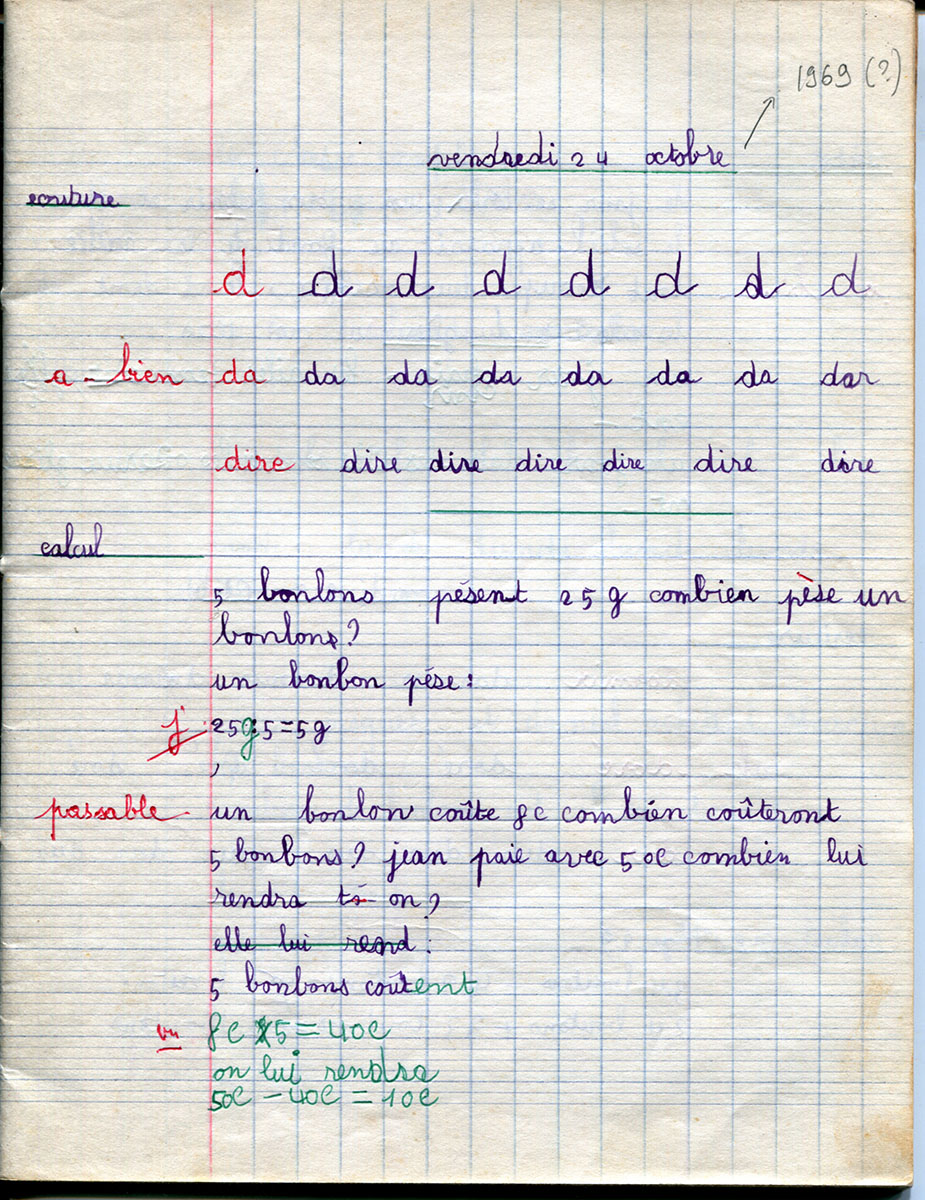 1969 (?)
vendredi 24 octobre
ecriture
d d d d d d d d
a-bien da da da da da da da dar
dire dire dire dire dire dire dire
calcul
5 bonbons pésent 25g combien pèse un
bonbons?
un bonbon pése:
j 25g:5=5g
passable un bonbon coûte 8c combién coûteront
5 bonbons? jean paie avec 50c combien lui
rendra t- on?
elle lui rend:
5 bonbons coûtent
vu 8c x5=40c
on lui rendra
50c - 40c = 10c